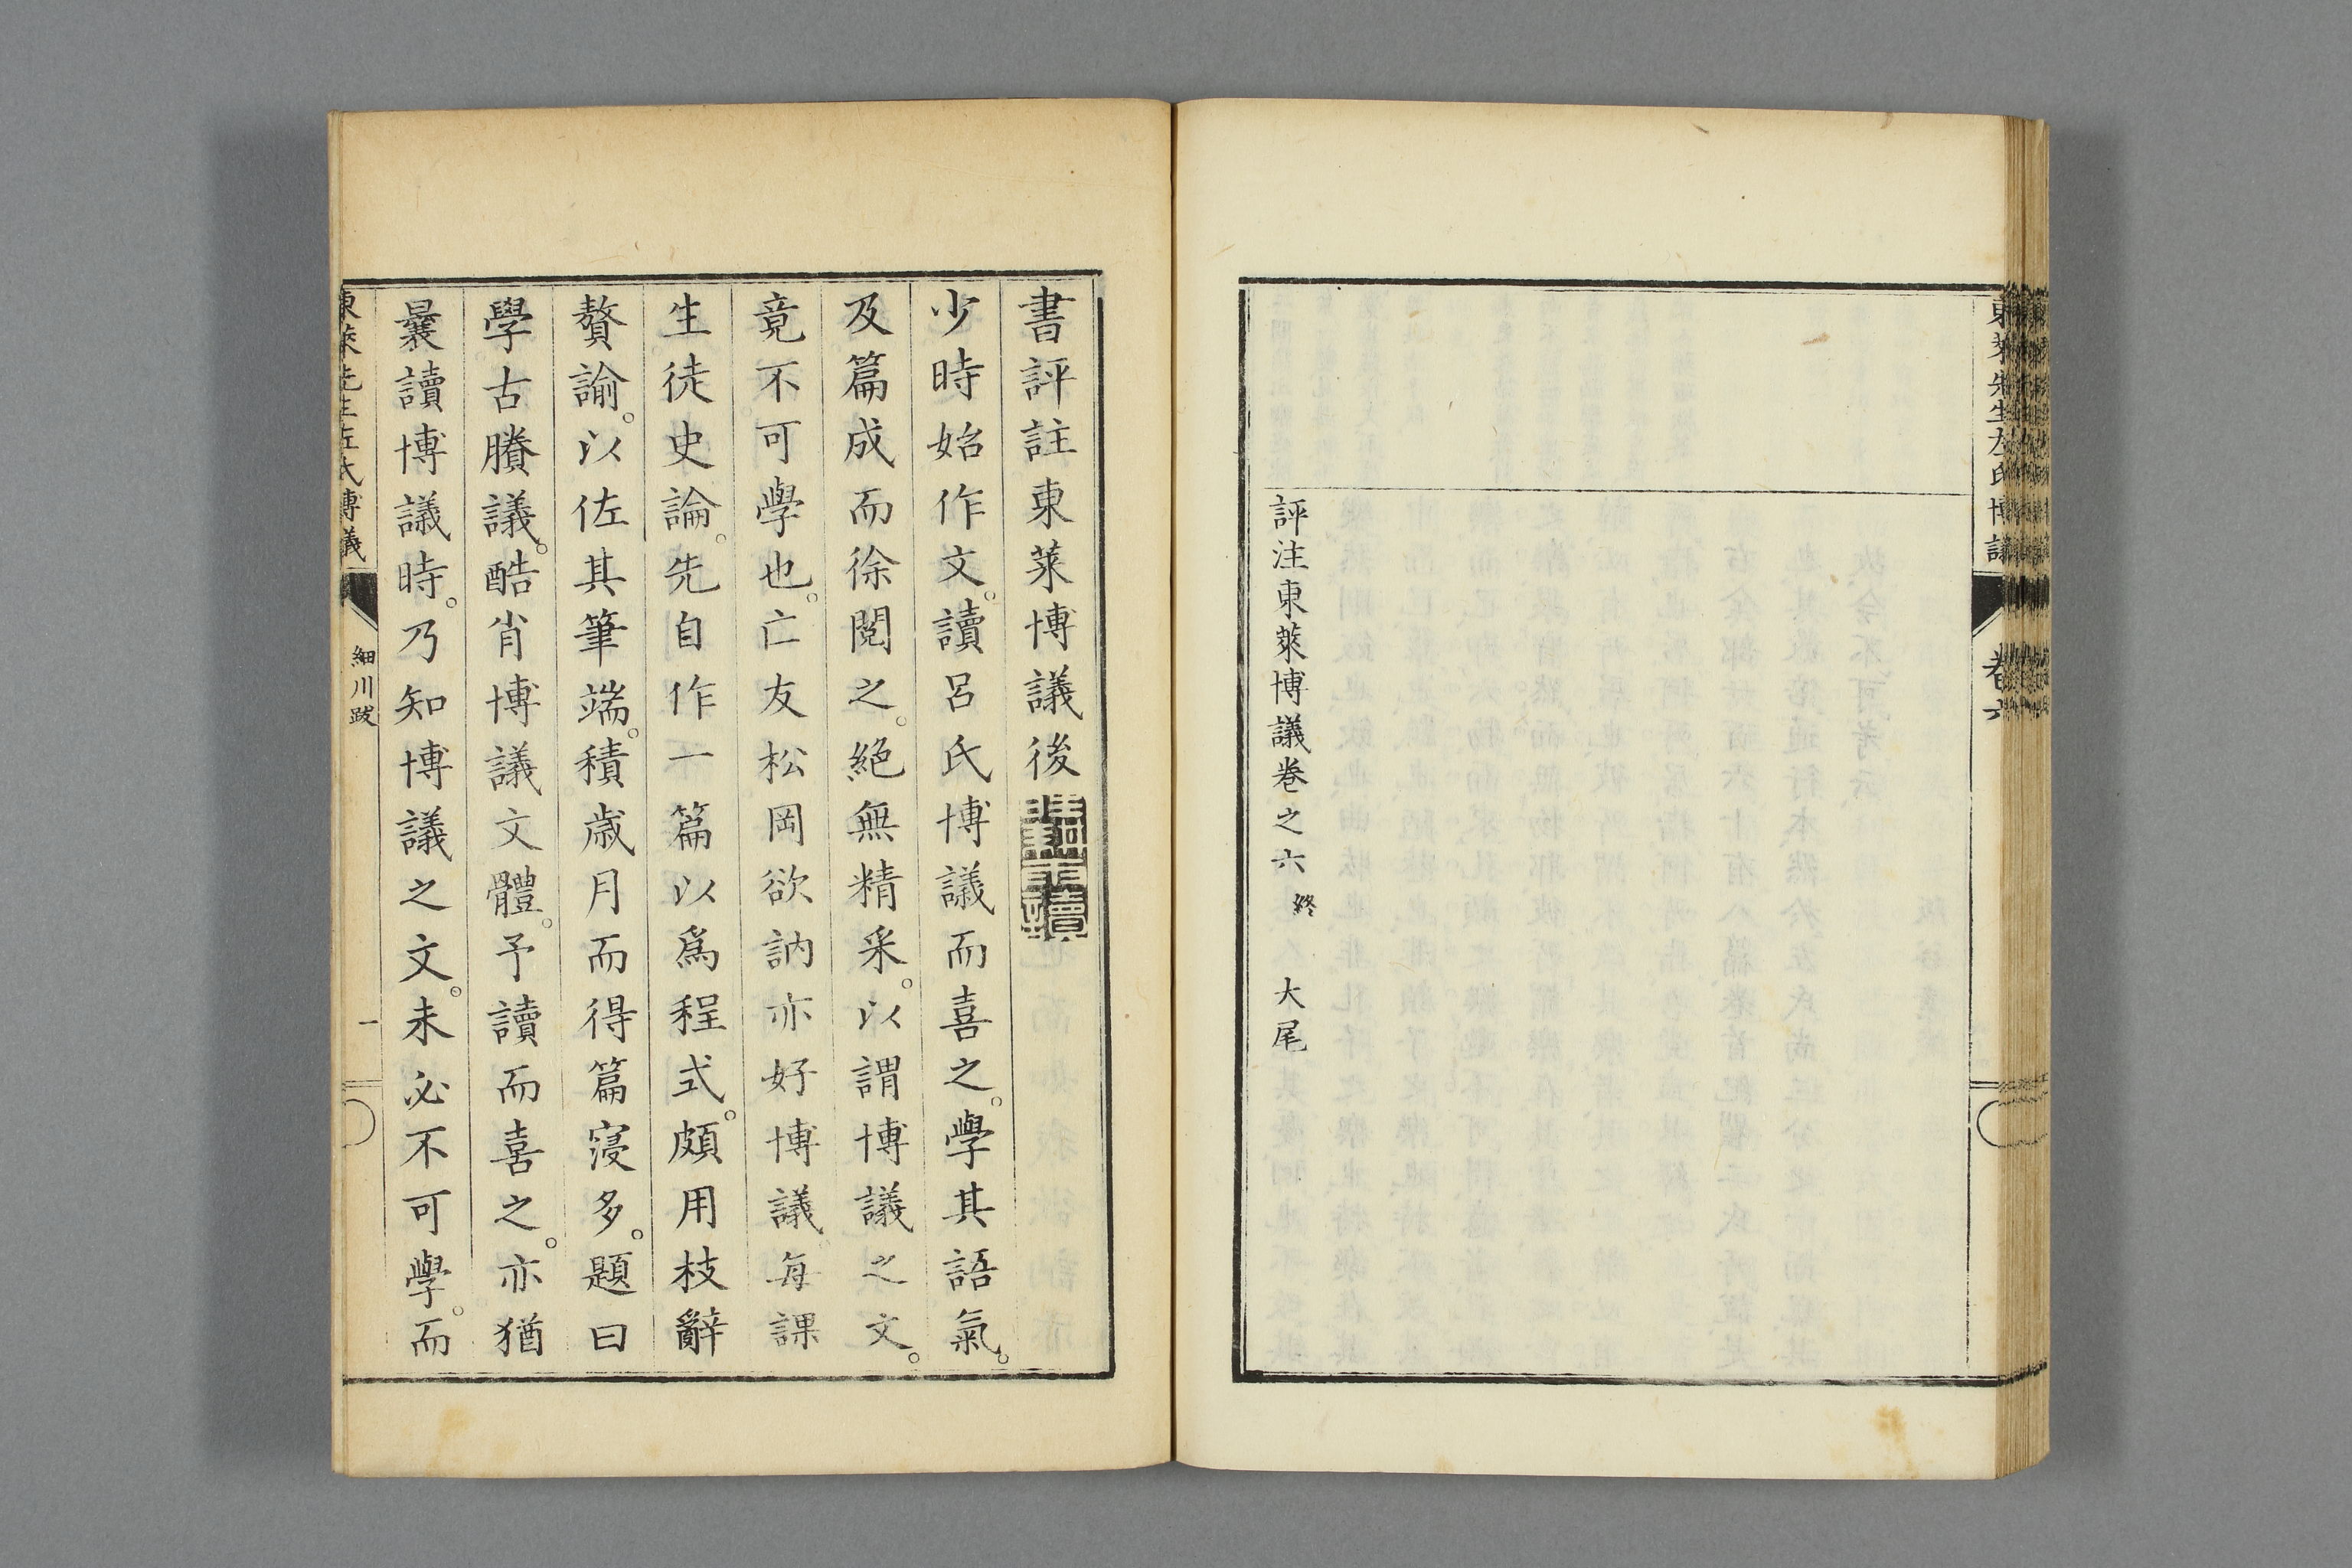 東萊先生左氏博議
卷六
評注東萊博議卷之六 終 大尾
書評註東萊博議後
少時始作文。讀呂氏博議而喜之。學其語氣。
及篇成而徐閱之。絕無精采。以謂博議之文。
竟不可學也。亡友松岡欲訥亦好博議每課
生徒史論。先自作一篇以爲程式。頗用枝辭
贅諭。以佐其筆端。積歲月而得篇寖多。題曰
學古賸議。酷肖博議文體。予讀而喜之。亦猶
曩讀博議時。乃知博議之文。未必不可學。而
東萊先生左氏博議
細川跋
一